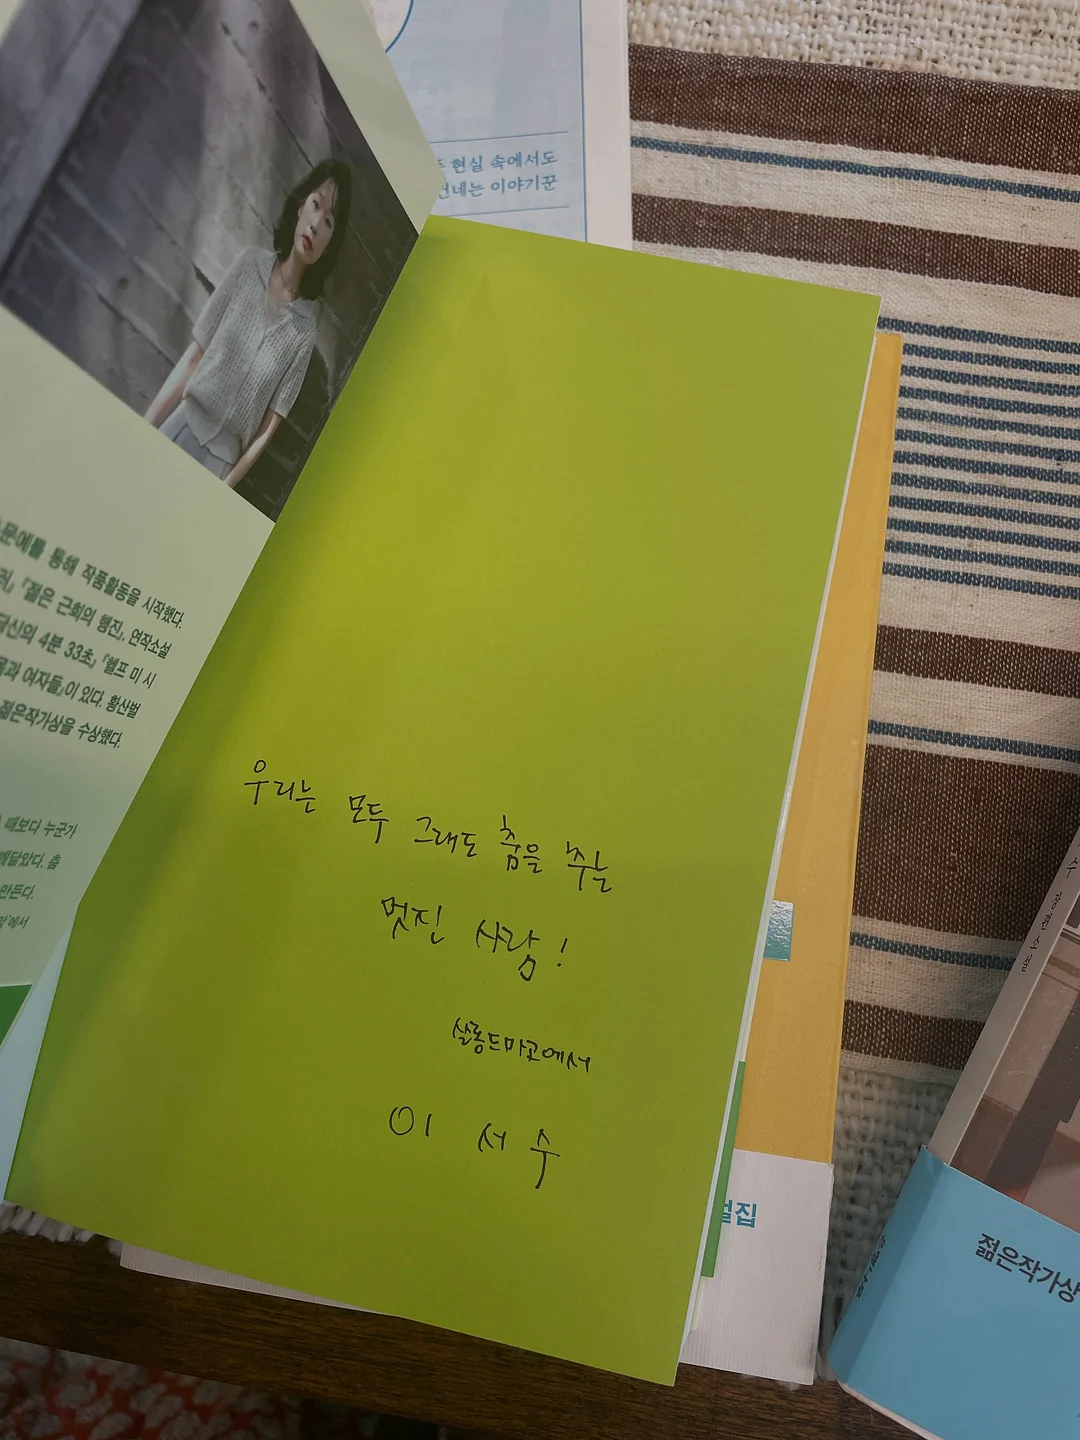 현실 속에서도
건네는 이야기꾼
문예를 통해 작품활동을 시작했다.
『젊은 근희의 행진』, 연작소설
당신의 4분 33초』 『헬프 미 시
몸과 여자들』이 있다. 황산벌
젊은작가상을 수상했다.
때보다 누군가
깨달았다. 춤
만든다.
에서
우리는 모두 그래도 춤을 추는
멋진 사람!
살롱드마고에서
이 서 수
설집
수 장편소설
젊은작가상